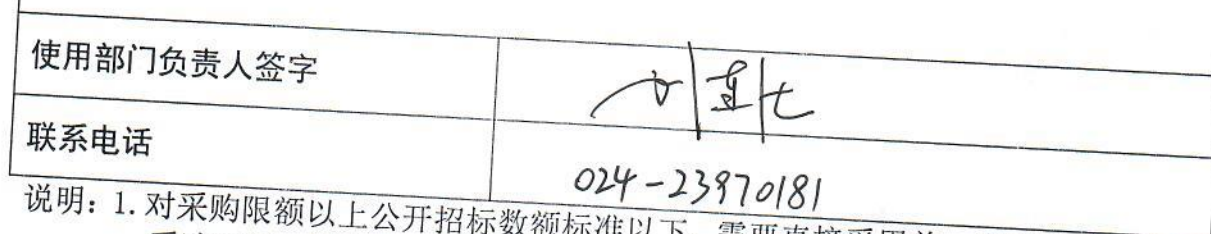 使用部门负责人签字
联系电话 024-23970181
说明：1.对采购限额以上公开招标数额标准以下，需要直接采用单